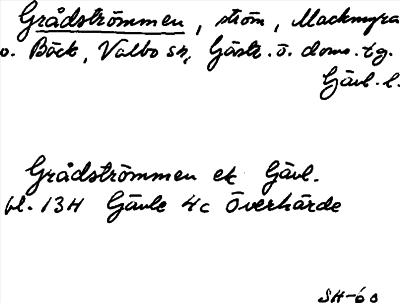 Grådströmmen, ström, Mackmyra
o. Böck, Valbo sn, Gästr. ö. doms. tg.
Gävl. l.
Grådströmmen ek Gävl.
bl. 13H Gävle 4c Överhärde
SH-60